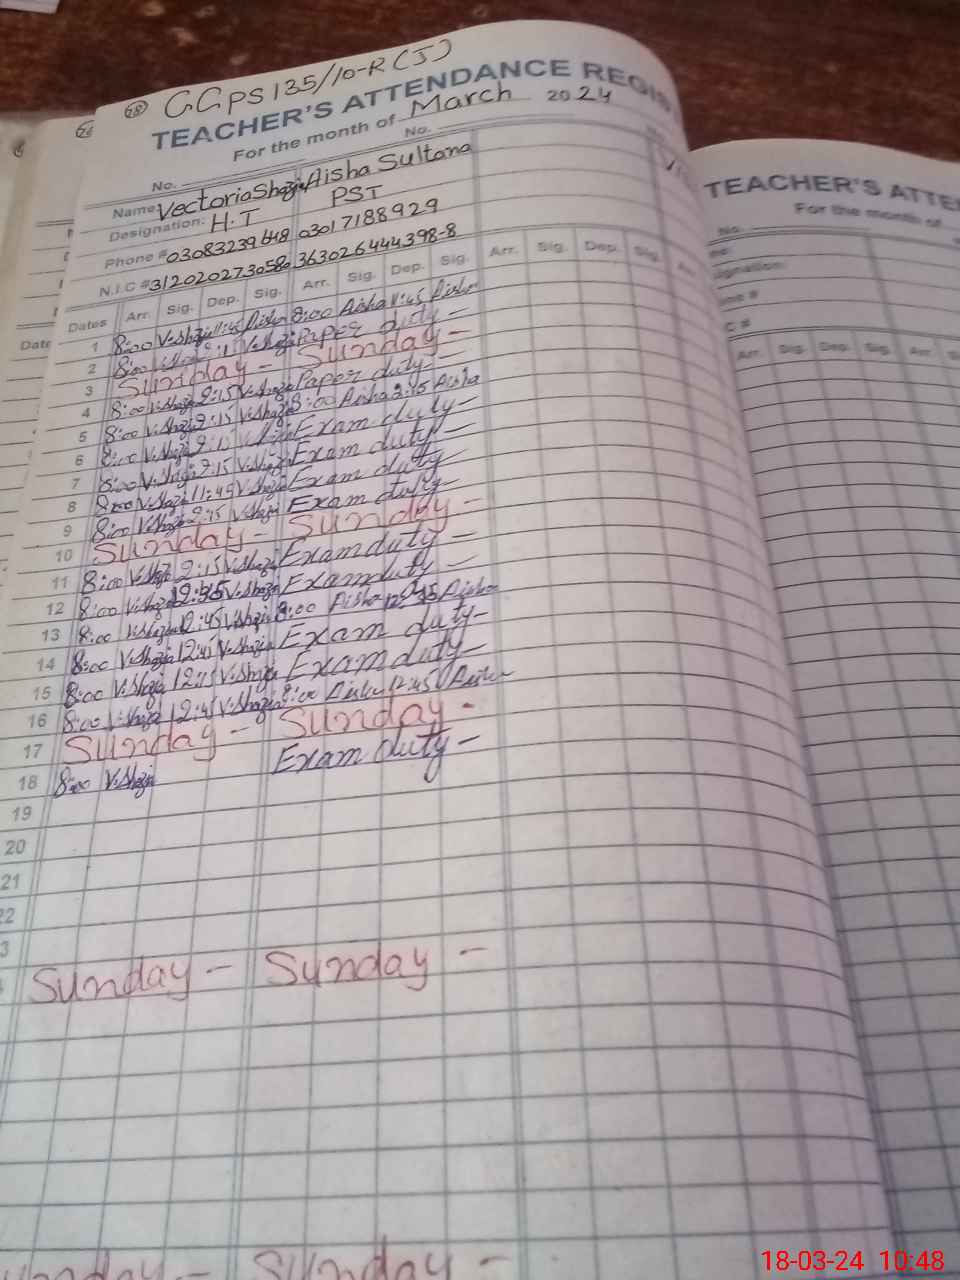 28 GGPS 135/10-R (J)
TEACHER'S ATTENDANCE REGIS
For the month of March 2024
No. No.
Name Vectoria Shazia Aisha Sultana
Designation: H.T PST
Phone # 03083239648 03017188929
N.I.C # 3120202730580 363026444398-8
Dates Arr. Sig. Dep. Sig. Arr. Sig. Dep. Sig. Arr. Sig. Dep. Sig.
1 8:00 V.Shazia 11:45 Aisha 8:00 Aisha 11:45 Aisha
2 8:00 V.Shazia Paper duty -
3 Sunday - Sunday -
4 8:00 V.Shazia 2:15 V.Shazia Paper duty -
5 8:00 V.Shazia 2:15 V.Shazia 8:00 Aisha 2:45 Aisha
6 8:00 V.Shazia 2:15 Exam duty -
7 8:00 V.Shazia 2:15 V.Shazia Exam duty -
8 8:00 V.Shazia 11:45 V.Shazia Exam duty -
9 8:00 V.Shazia V.Shazia Exam duty -
10 Sunday - Sunday -
11 8:00 V.Shazia 2:15 V.Shazia Exam duty -
12 8:00 V.Shazia V.Shazia Exam duty -
13 8:00 V.Shazia 12:45 V.Shazia 8:00 Aisha Aisha
14 8:00 V.Shazia 12:45 V.Shazia Exam duty -
15 8:00 V.Shazia 12:15 V.Shazia Exam duty -
16 8:00 V.Shazia 12:45 V.Shazia 8:00 Aisha 12:45 Aisha
17 Sunday - Sunday -
18 8:00 V.Shazia Exam duty -
19
20
21
22
3
Sunday - Sunday -
Sunday - Sunday -
TEACHER'S ATTE
For the month of
No.
Arr. Sig. Dep. Sig. Arr. S
18-03-24 10:48